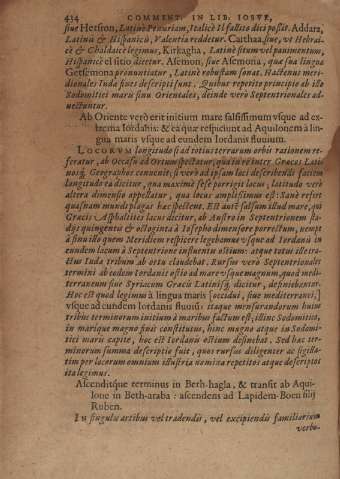 434 COMMENT. IN LIB. IOSVE,
siue Hetsron, Latinè Penurium, Italicè Il fallito dici possit. Addara,
Latinè & Hispanicè, Valentia redditur. Carthaa, siue, vt Hebrai-
cè & Chaldaicè legimus, Kirkagha, Latinè situm vel pauimentum,
Hispanicè el sitio dicetur. Asemon, siue Asemona, quæ sua lingua
Getsemona pronuntiatur, Latinè robustam sonat. Hactenus meri-
dionales Iuda fines descripti sunt. Quibus repetito principio ab illo
Sodomitici maris sinu Orientales, deinde verò Septentrionales ad-
uectuntur.
Ab Oriente verò erit initium mare salsissimum vsque ad ex-
trema Iordanis: & ea quæ respiciunt ad Aquilonem à lin
gua maris vsque ad eundem Iordanis fluuium.
LOCORVM longitudo si ad totius terrarum orbis rationem re-
feratur, ab Occasu ad Ortum spectatur, qua in re inter Græcos Lati
nosq́; Geographos conuenit; si verò ad ipsam loci describendi faciem
longitudo ea dicitur, qua maximè sese porrigit locus, latitudo verò
altera dimensio appellatur, qua locus amplissimus est: Sanè refert
quasnam mundi plagas hæc spectent. Est autē salsum illud mare, qui
Græcis Asphaltites lacus dicitur, ab Austro in Septentrionem sta-
dijs quingentis & octoginta à Iosepho dimensore porrectum, nempè
à sinu illo quem Meridiem respicere legebamus vsque ad Iordanis in
eundem lacum à Septentrione influentis ostium: atque totus ille tra-
ctus Iuda tribum ab ortu claudebat. Rursus verò Septentrionalis
termini ab eodem Iordanis ostio ad mare vsque magnum, quod medi-
terraneum siue Syriacum Græcis Latinisq́; dicitur, definiebantur.
Hoc est quod legimus à lingua maris [occidui, siue mediterranei,]
vsque ad eundem Iordanis fluuium: itaque mensurandorum huius
tribus terminorum initium à maribus factum est, illinc Sodomitico,
in mariqué magno finis constitutus, hinc magno atque in Sodomi-
tici maris capite, hoc est Iordanis ostium desinebat. Sed hæc ter-
minorum summa descriptio fuit, quos rursus diligenter ac sigilla-
tim per locorum omnium illustria nomina repetitos atque descriptos
ita legimus.
Ascenditque terminus in Beth-hagla, & transit ab Aqui-
lone in Beth-araba: ascendens ad Lapidem-Boen filij
Ruben.
In singulis artibus vel tradendis, vel excipiendis familiarium
verbo-